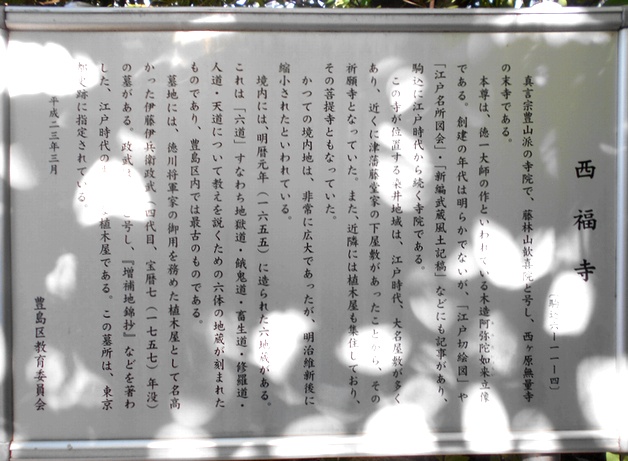 西福寺
(駒込六―一一―四)
真言宗豊山派の寺院で、藤林山歓喜院と号し、西ヶ原無量寺
の末寺である。
本尊は、徳一大師の作といわれている木造阿弥陀如来立像
である。創建の年代は明らかでないが、「江戸切絵図」や
「江戸名所図会」・「新編武蔵風土記稿」などにも記事があり、
駒込に江戸時代から続く寺院である。
この寺が位置する染井地域は、江戸時代、大名屋敷が多く
あり、近くに津藩藤堂家の下屋敷があったことから、その
祈願寺となっていた。また、近隣には植木屋も集住しており、
その菩提寺ともなっていた。
かつての境内地は、非常に広大であったが、明治維新後に
縮小されたといわれている。
境内には、明暦元年(一六五五)に造られた六地蔵がある。
これは「六道」すなわち地獄道・餓鬼道・畜生道・修羅道・
人道・天道について教えを説くための六体の地蔵が刻まれた
ものであり、豊島区内では最古のものである。
墓地には、徳川将軍家の御用を務めた植木屋として名高
かった伊藤伊兵衛政武(四代目、宝暦七(一七五七)年没)
の墓がある。政武は 号し、『増補地錦抄』などを著わ
した、江戸時代の 植木屋である。この墓所は、東京
史跡に指定されている。
平成二三年三月
豊島区教育委員会